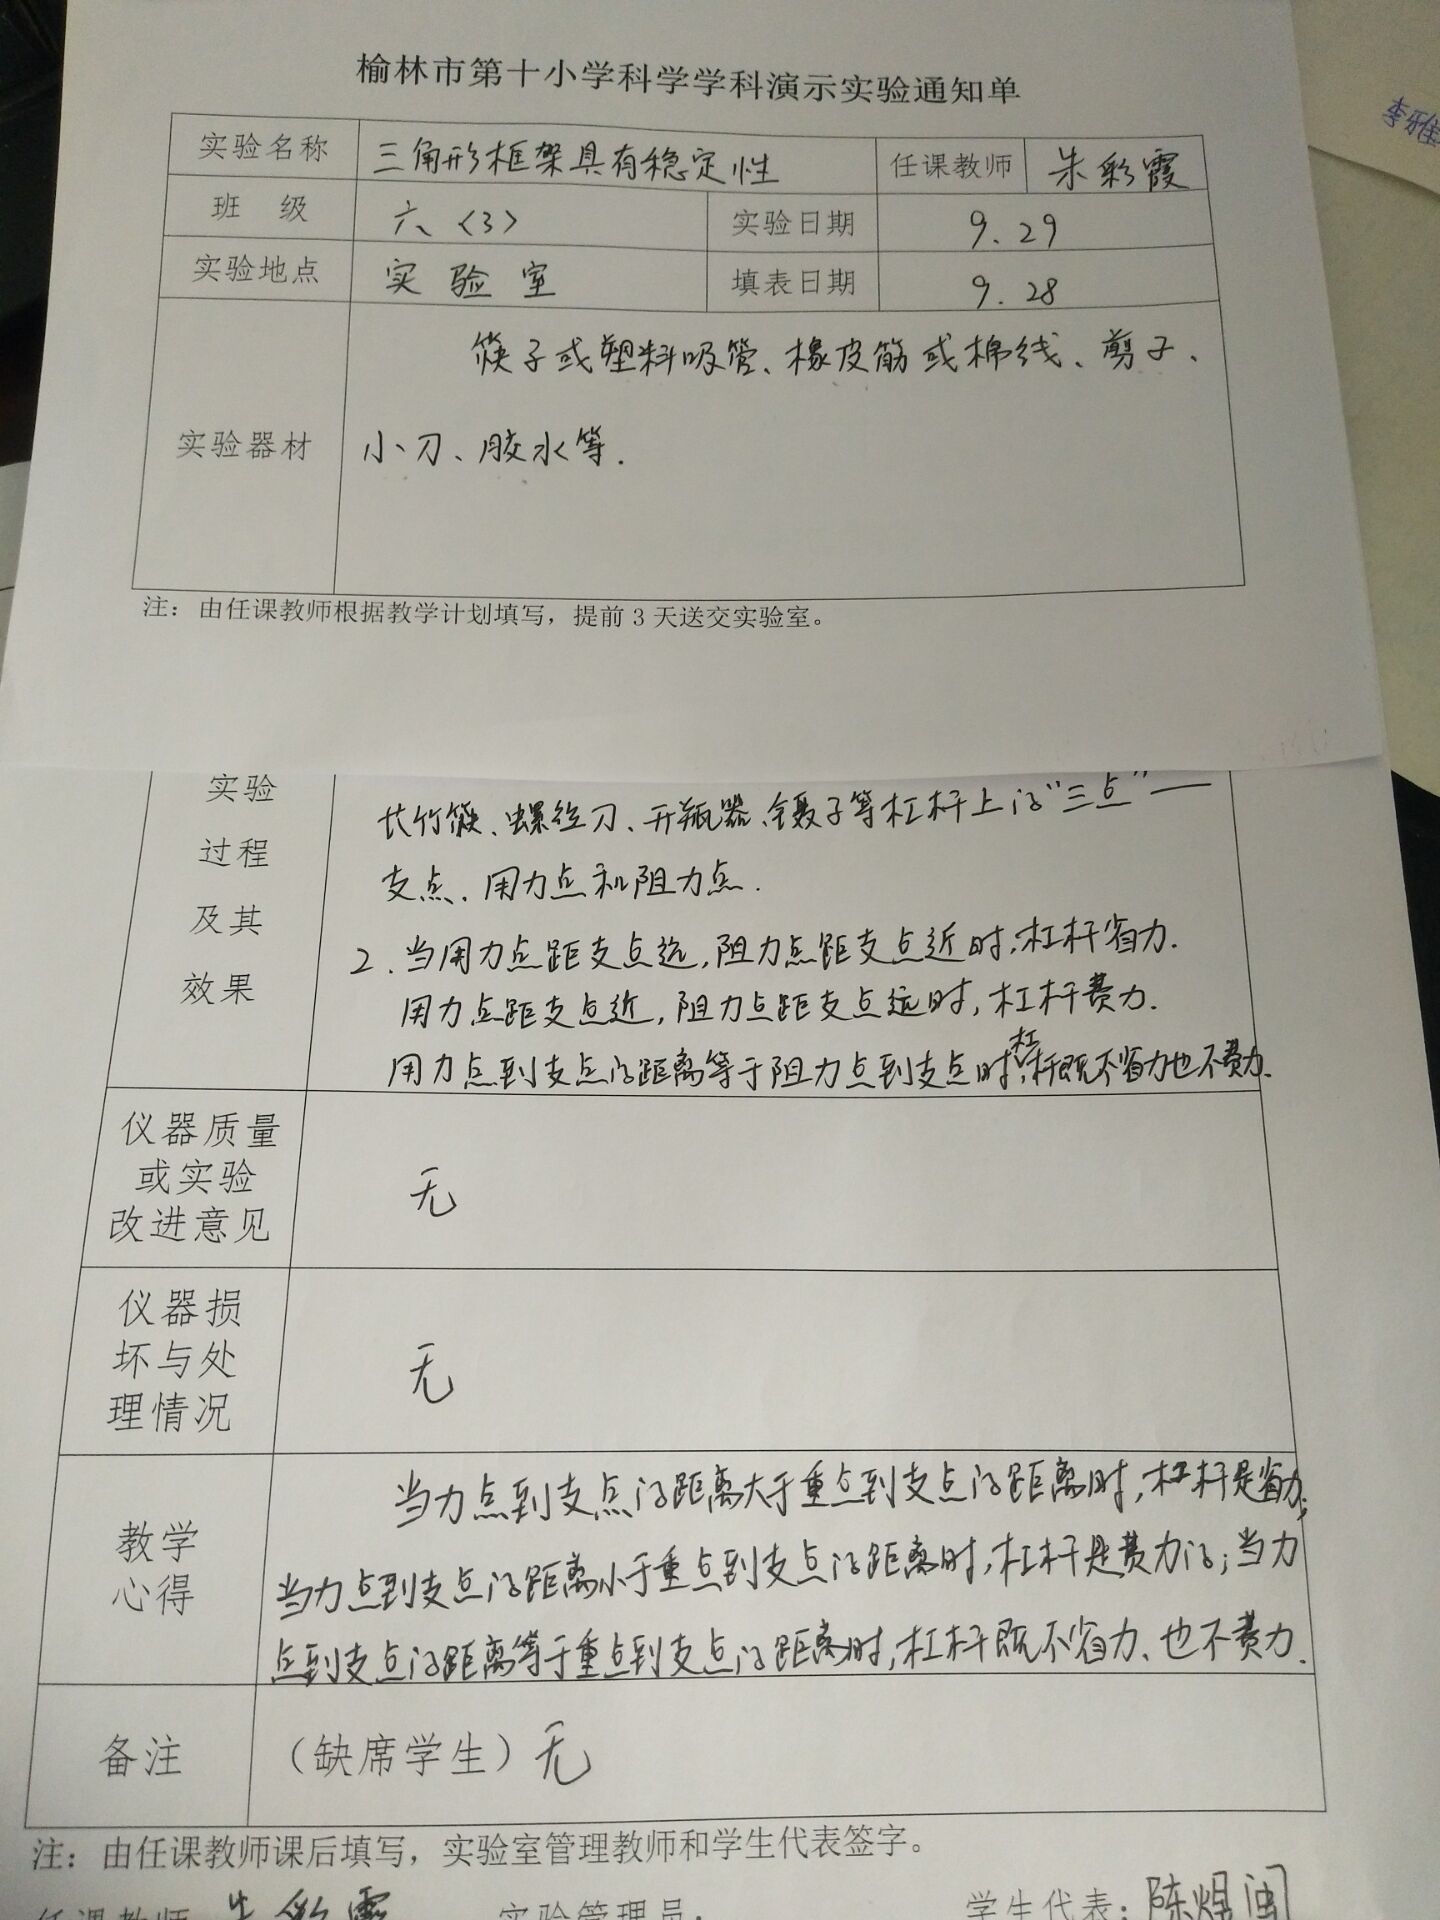 榆林市第十小学科学学科演示实验通知单
实验名称 三角形框架具有稳定性 任课教师 朱彩霞
班 级 六(3) 实验日期 9.29
实验地点 实验室 填表日期 9.28
筷子或塑料吸管、橡皮筋或棉线、剪子、
实验器材 小刀、胶水等.
注：由任课教师根据教学计划填写，提前3天送交实验室。
李雅
实验
过程
及其
效果
长竹筷、螺丝刀、开瓶器、镊子等杠杆上的"三点"——
支点、用力点和阻力点.
2.当用力点距支点远,阻力点距支点近时,杠杆省力.
用力点距支点近,阻力点距支点远时,杠杆费力.
用力点到支点的距离等于阻力点到支点时,杠杆既不省力也不费力.
仪器质量
或实验
改进意见
无
仪器损
坏与处
理情况
无
教学
心得
当力点到支点的距离大于重点到支点的距离时,杠杆是省力;
当力点到支点的距离小于重点到支点的距离时,杠杆是费力的;当力
点到支点的距离等于重点到支点的距离时,杠杆既不省力、也不费力.
备注 （缺席学生）无
注：由任课教师课后填写，实验室管理教师和学生代表签字。
任课教师 朱彩霞 实验管理员: 学生代表: 陈煜闽